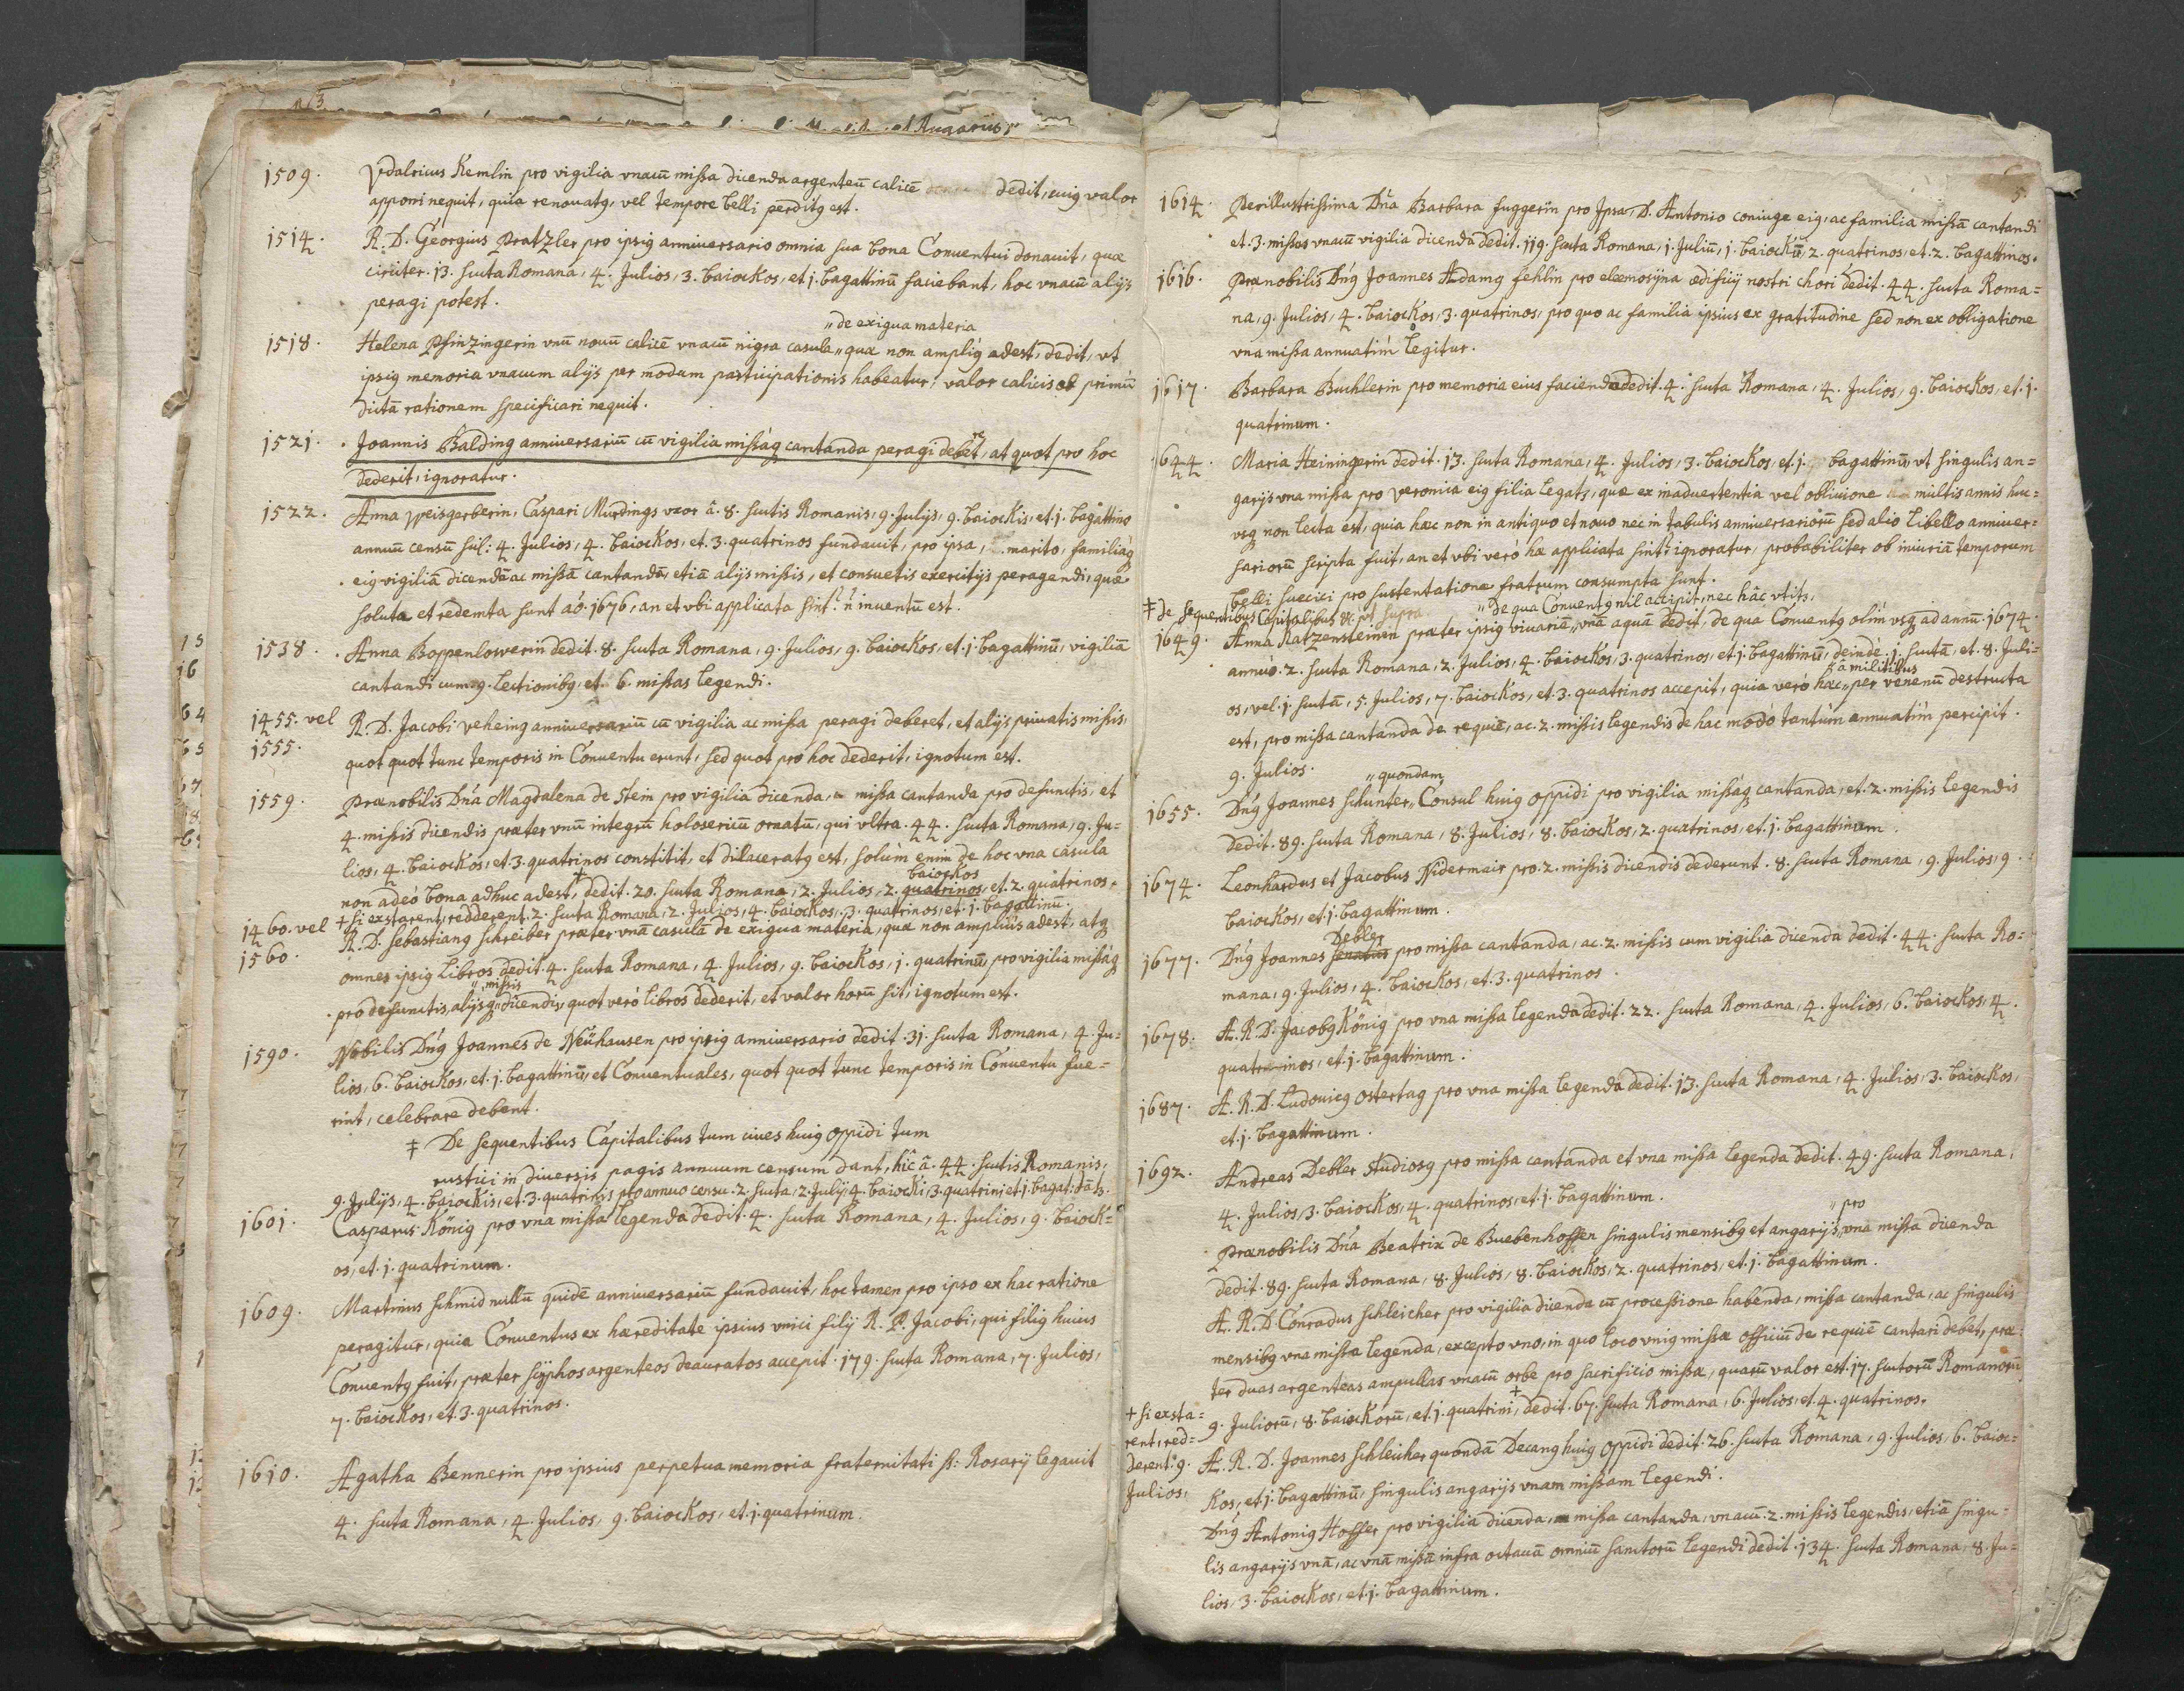 1509. Vdalricus Kemlin pro vigilia vnacũ missa dicenda argenteũ calicẽ dedit, cuiꝯ valor
apponi nequit, quia renouatꝯ, vel tempore belli perditꝯ est.
1514. R. D. Georgius Pratzler pro ipsiꝯ anniversario omnia sua bona Conventui donauit, quæ
circiter. 13. scuta Romana, 4. Julios, 3. baiockos, et j. bagattinũ faciebant, hoc vnacũ alijs
peragi potest.
„de exigua materia
1518. Helena Pfinzingerin vnũ nouũ calicẽ vnacũ nigra casula „ quæ non ampliꝯ adest, dedit, vt
ipsiꝯ memoria vnacum alijs per modum participationis habeatur, valor calicis ob primũ
dictã rationem specificari nequit.
1521. Joannis Balding anniversariũ cũ vigilia missáqꝫ cantanda peragi deberet, at quot pro hoc
dederit, ignoratur.
1522. Anna Weisgerberin, Caspari Mürdings vxor â. 8. scutis Romanis, 9. Julijs, 9. baiockis, et. j. bagattino
annuũ censũ scil: 4. Julios, 4. baiockos, et. 3. quatrinos fundauit, pro ipsa, marito, familiáqꝫ
eiꝯ vigiliã dicendã ac missã cantandã, etiã alijs missis, et consuetis exercitijs peragendi, quæ
soluta et redemta sunt aö. 1676, an et vbi applicata sint? ñ inuentũ est.
1538. Anna Boppenloswerin dedit. 8. scuta Romana, 9. Julios, 9. baiockos, et. j. bagattinũ, vigiliã
cantandi cum. 9. lectionibꝯ, et. 6. missas legendi.
1455. vel R. D. Jacobi Veheing anniversariũ cũ vigilia ac missa peragi deberet, et alijs priuatis missis,
1555. quot quot tunc temporis in Conventu erunt, sed quot pro hoc dederit, ignotum est.
1559. Prænobilis Dña Magdalena de Stein pro vigilia dicenda, missa cantanda pro defunctis, et
4. missis dicendis præter vnũ integrũ holosericũ ornatũ, qui vltra. 44. scuta Romana, 9. Ju=
lios, 4. baiockos, et 3. quatrinos constitit, et dilaceratꝯ est, solùm enim de hoc vna casula
baiockos
non adeò bona adhuc adest, ‡ dedit. 20. scuta Romana, 2. Julios, 2. quatrinos, et. 2. quatrinos.
+ si exstarent, redderent. 2. scuta Romana, 2. Julios, 4. baiockos, 3. quatrinos, et. j. bagattinũ.
1460. vel R. D. Sebastianꝯ Schreiber præter vnã casulã de exigua materia, quæ non ampliùs adest, atqꝫ
1560. omnes ipsiꝯ libros dedit. 4. scuta Romana, 4. Julios, 9. baiockos, j. quatrinũ, pro vigilia missáqꝫ
„missis
pro defunctis, alijsqꝫ „ dicendis, quot verò libros dederit, et valor horũ sit, ignotum est.
1590. Nobilis Dñꝯ Joannes de Neühausen pro ipsiꝯ anniversario dedit. 31. scuta Romana, 4. Ju=
lios, 6. baiockos, et. j. bagattinũ, et Conventuales, quot quot tunc temporis in Conventu fue=
rint, celebrare debent.
‡ De sequentibus Capitalibus tum ciues huiꝯ oppidi tum
rustici in diversis pagis annuum censum dant, hic â. 44. scutis Romanis,
9. Julijs, 4. baiockis, et. 3. quatrinis pro annuo censu. 2. scuta, 2. Julij, 4. baiocki, 3. quatrini et j. bagat: dãtꝫ.
1601. Casparus König pro vna missa legenda dedit. 4. scuta Romana, 4. Julios, 9. baiock=
os, et. j. quatrinum.
1609. Martinus Schmid nullũ quidẽ anniversariũ fundauit, hoc tamen pro ipso ex hac ratione
peragitur, quia Conventus ex hæreditate ipsius vnici filij R. P. Jacobi, qui filiꝯ huius
Conventꝯ fuit, præter scÿphos argenteos deauratos accepit. 179. scuta Romana, 7. Julios,
7. baiockos, et. 3. quatrinos.
1610. Agatha Bennerin pro ipsius perpetua memoria fraternitati ss: Rosarij legauit
4. scuta Romana, 4. Julios, 9. baiockos, et. j. quatrinum.
5.
1614. Perillustrissima Dña Barbara Fuggerin pro Ipsa, D. Antonio coniuge eiꝯ, ac familia missã cantandi
et. 3. missas vnacũ vigilia dicenda dedit. 119. scuta Romana, j. Juliũ, j. baiockũ, 2. quatrinos, et. 2. bagattinos.
1616. Prænobilis Dñꝯ Joannes Adamꝯ Fehlin pro eleemosÿna ædificij nostri chori dedit. 44. scuta Roma=
na, 9. Julios, 4. baiockos, 3. quatrinos, pro quo ac familia ipsius ex gratitudine sed non ex obligatione
vna missa annuatim legitur.
1617. Barbara Buchlerin pro memoria eius facienda dedit. 4. scuta Romana, 4. Julios, 9. baiockos, et. j.
quatrinum.
1644. Maria Heiningerin dedit. 13. scuta Romana, 4. Julios, 3. baiockos, et. j. bagattinũ, vt singulis an=
garijs vna missa pro Veronica eiꝯ filia legatꝫ, quæ ex inadvertentia vel obliuione multis annis huc=
vsqꝫ non lecta est, quia hæc non in antiquo et nouo nec in tabulis anniversariorũ sed alio libello anniver=
sariorũ scripta fuit, an et vbi verò hæ applicata sint? ignoratur, probabiliter ob iniuriã temporum
belli suecici pro sustentatione fratrum consumpta sunt.
‡ de sequentibus Capitalibus &c. vt supra „ de qua Conventꝯ nil accipit, nec hâc vtitꝫ,
1649. Anna Katzensteinin præter ipsiꝯ viuariẽ „ vnã aquã dedit, de qua Conventꝯ olim vsqꝫ ad annũ. 1674.
annuò. 2. scuta Romana, 2. Julios, 4. baiockos, 3. quatrinos, et. j. bagattinũ, deindè. j. scutã, et. 8. Juli=
„ â militibus
os, vel. j. scutã, 5. Julios, 7. baiockos, et. 3. quatrinos accepit, quia verò hæc „ per venenũ destructa
est, pro missa cantanda de requiẽ, ac. 2. missis legendis de hac modò tantùm annuatim percipit.
9. Julios.
„ quondam
1655. Dñꝯ Joannes Schunter „ Consul huiꝯ oppidi pro vigilia missáqꝫ cantanda, et. 2. missis legendis
dedit. 89. scuta Romana, 8. Julios, 8. baiockos, 2. quatrinos, et. j. bagattinum.
1674. Leonhardus et Jacobus Nidermair pro. 2. missis dicendis dederunt. 8. scuta Romana, 9. Julios, 9.
baiockos, et. j. bagattinum.
Debler
1677. Dñꝯ Joannes pro missa cantanda, ac. 2. missis cum vigilia dicenda dedit. 44. scuta Ro=
mana, 9. Julios, 4. baiockos, et. 3. quatrinos.
1678. A. R. D. Jacobꝯ König pro vna missa legenda dedit. 22. scuta Romana, 4. Julios, 6. baiockos, 4.
quatrinos, et. j. bagattinum.
1687. A. R. D. Ludovicꝯ Ostertag pro vna missa legenda dedit. 13. scuta Romana, 4. Julios, 3. baiockos,
et. j. bagattinum.
1692. Andreas Debler Studiosꝯ pro missa cantanda et vna missa legenda dedit. 49. scuta Romana,
4. Julios, 3. baiockos, 4. quatrinos, et. j. bagattinum.
„ pro
Prænobilis Dña Beatrix de Buebenhoffen singulis mensibꝯ et angarijs „ vna missa dicenda
dedit. 89. scuta Romana, 8. Julios, 8. baiockos, 2. quatrinos, et. j. bagattinum.
A. R. D. Conradus Schleicher pro vigilia dicenda cũ processione habenda, missa cantanda, ac singulis
mensibꝯ vna missa legenda, excepto vno, in quo loco vniꝯ missæ officiũ de requiẽ cantari debet, præ=
ter duas argenteas ampullas vnacũ orbe pro sacrificio missæ, quarũ valor est. 17. scutorũ Romanorũ
9. Juliorũ, 8. baiockorũ, et. j. quatrini, + dedit. 67. scuta Romana, 6. Julios, et. 4. quatrinos.
+ si exsta=
rent, red=
derent. 9.
Julios,
A. R. D. Joannes Schleicher quondã Decanꝯ huiꝯ oppidi dedit. 26. scuta Romana, 9. Julios, 6. baioc=
kos, et. j. bagattinũ, singulis angarijs vnam missam legendi.
Dñꝯ Antoniꝯ Hoffer pro vigilia dicenda, missa cantanda, vnacũ. 2. missis legendis, etiã singu=
lis angarijs vnã, ac vnã missã infra octauã omniũ sanctorũ legendi dedit. 134. scuta Romana, 8. Ju=
lios, 3. baiockos, et. j. bagattinum.